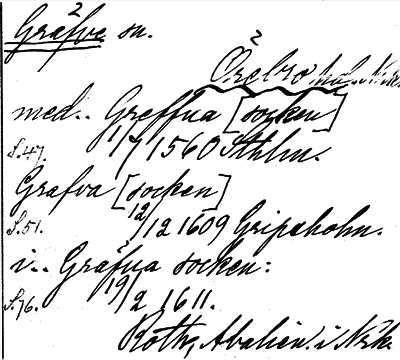 Gräfve sn.
2
Örebro häd. Nke
med.. Greffua [socken]
S.47. 1/7 1560 Sthlm.
Grafva [socken]
S.51. 12/12 1609 Gripsholm.
i.. Gräfua socken:
S.76. 19/2 1611.
Roth, Abalien. i Nrk.